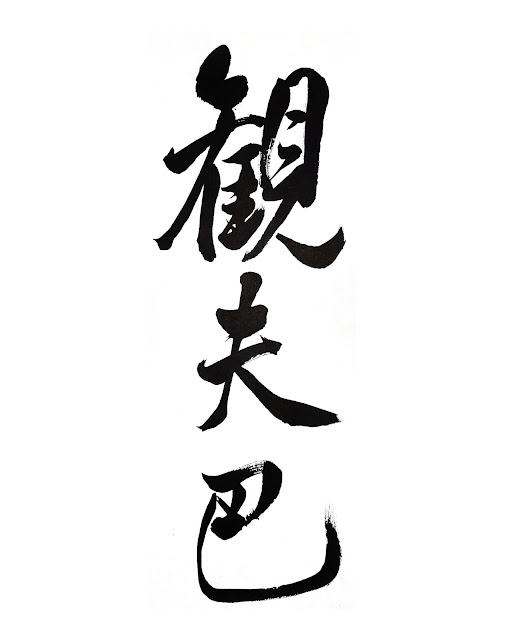 観夫巴